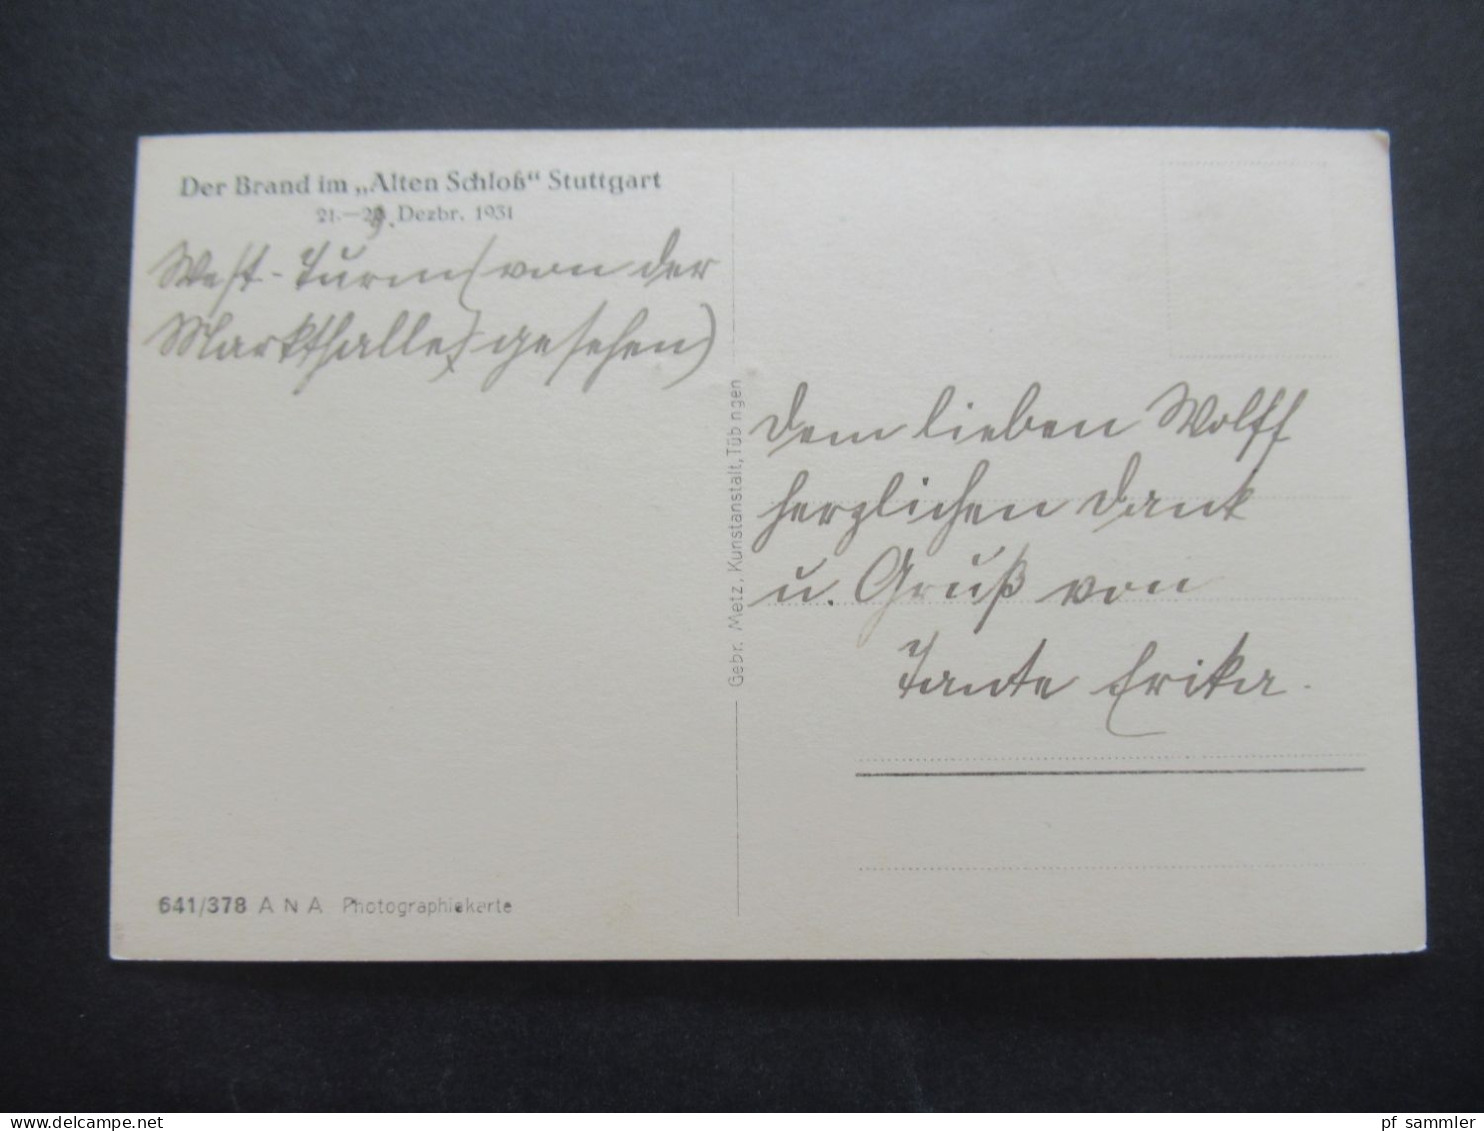 Der Brand im „Alten Schloß“ Stuttgart
21.—23. Dezbr. 1931
West-Turm (von der
Markthalle gesehen)
Dem lieben Wolff
herzlichen Dank
u. Gruß von
Tante Erika.
Gebr. Metz, Kunstanstalt, Tübingen
641/378 ANA Photographiekarte
www.delcampe.net
pf_sammler